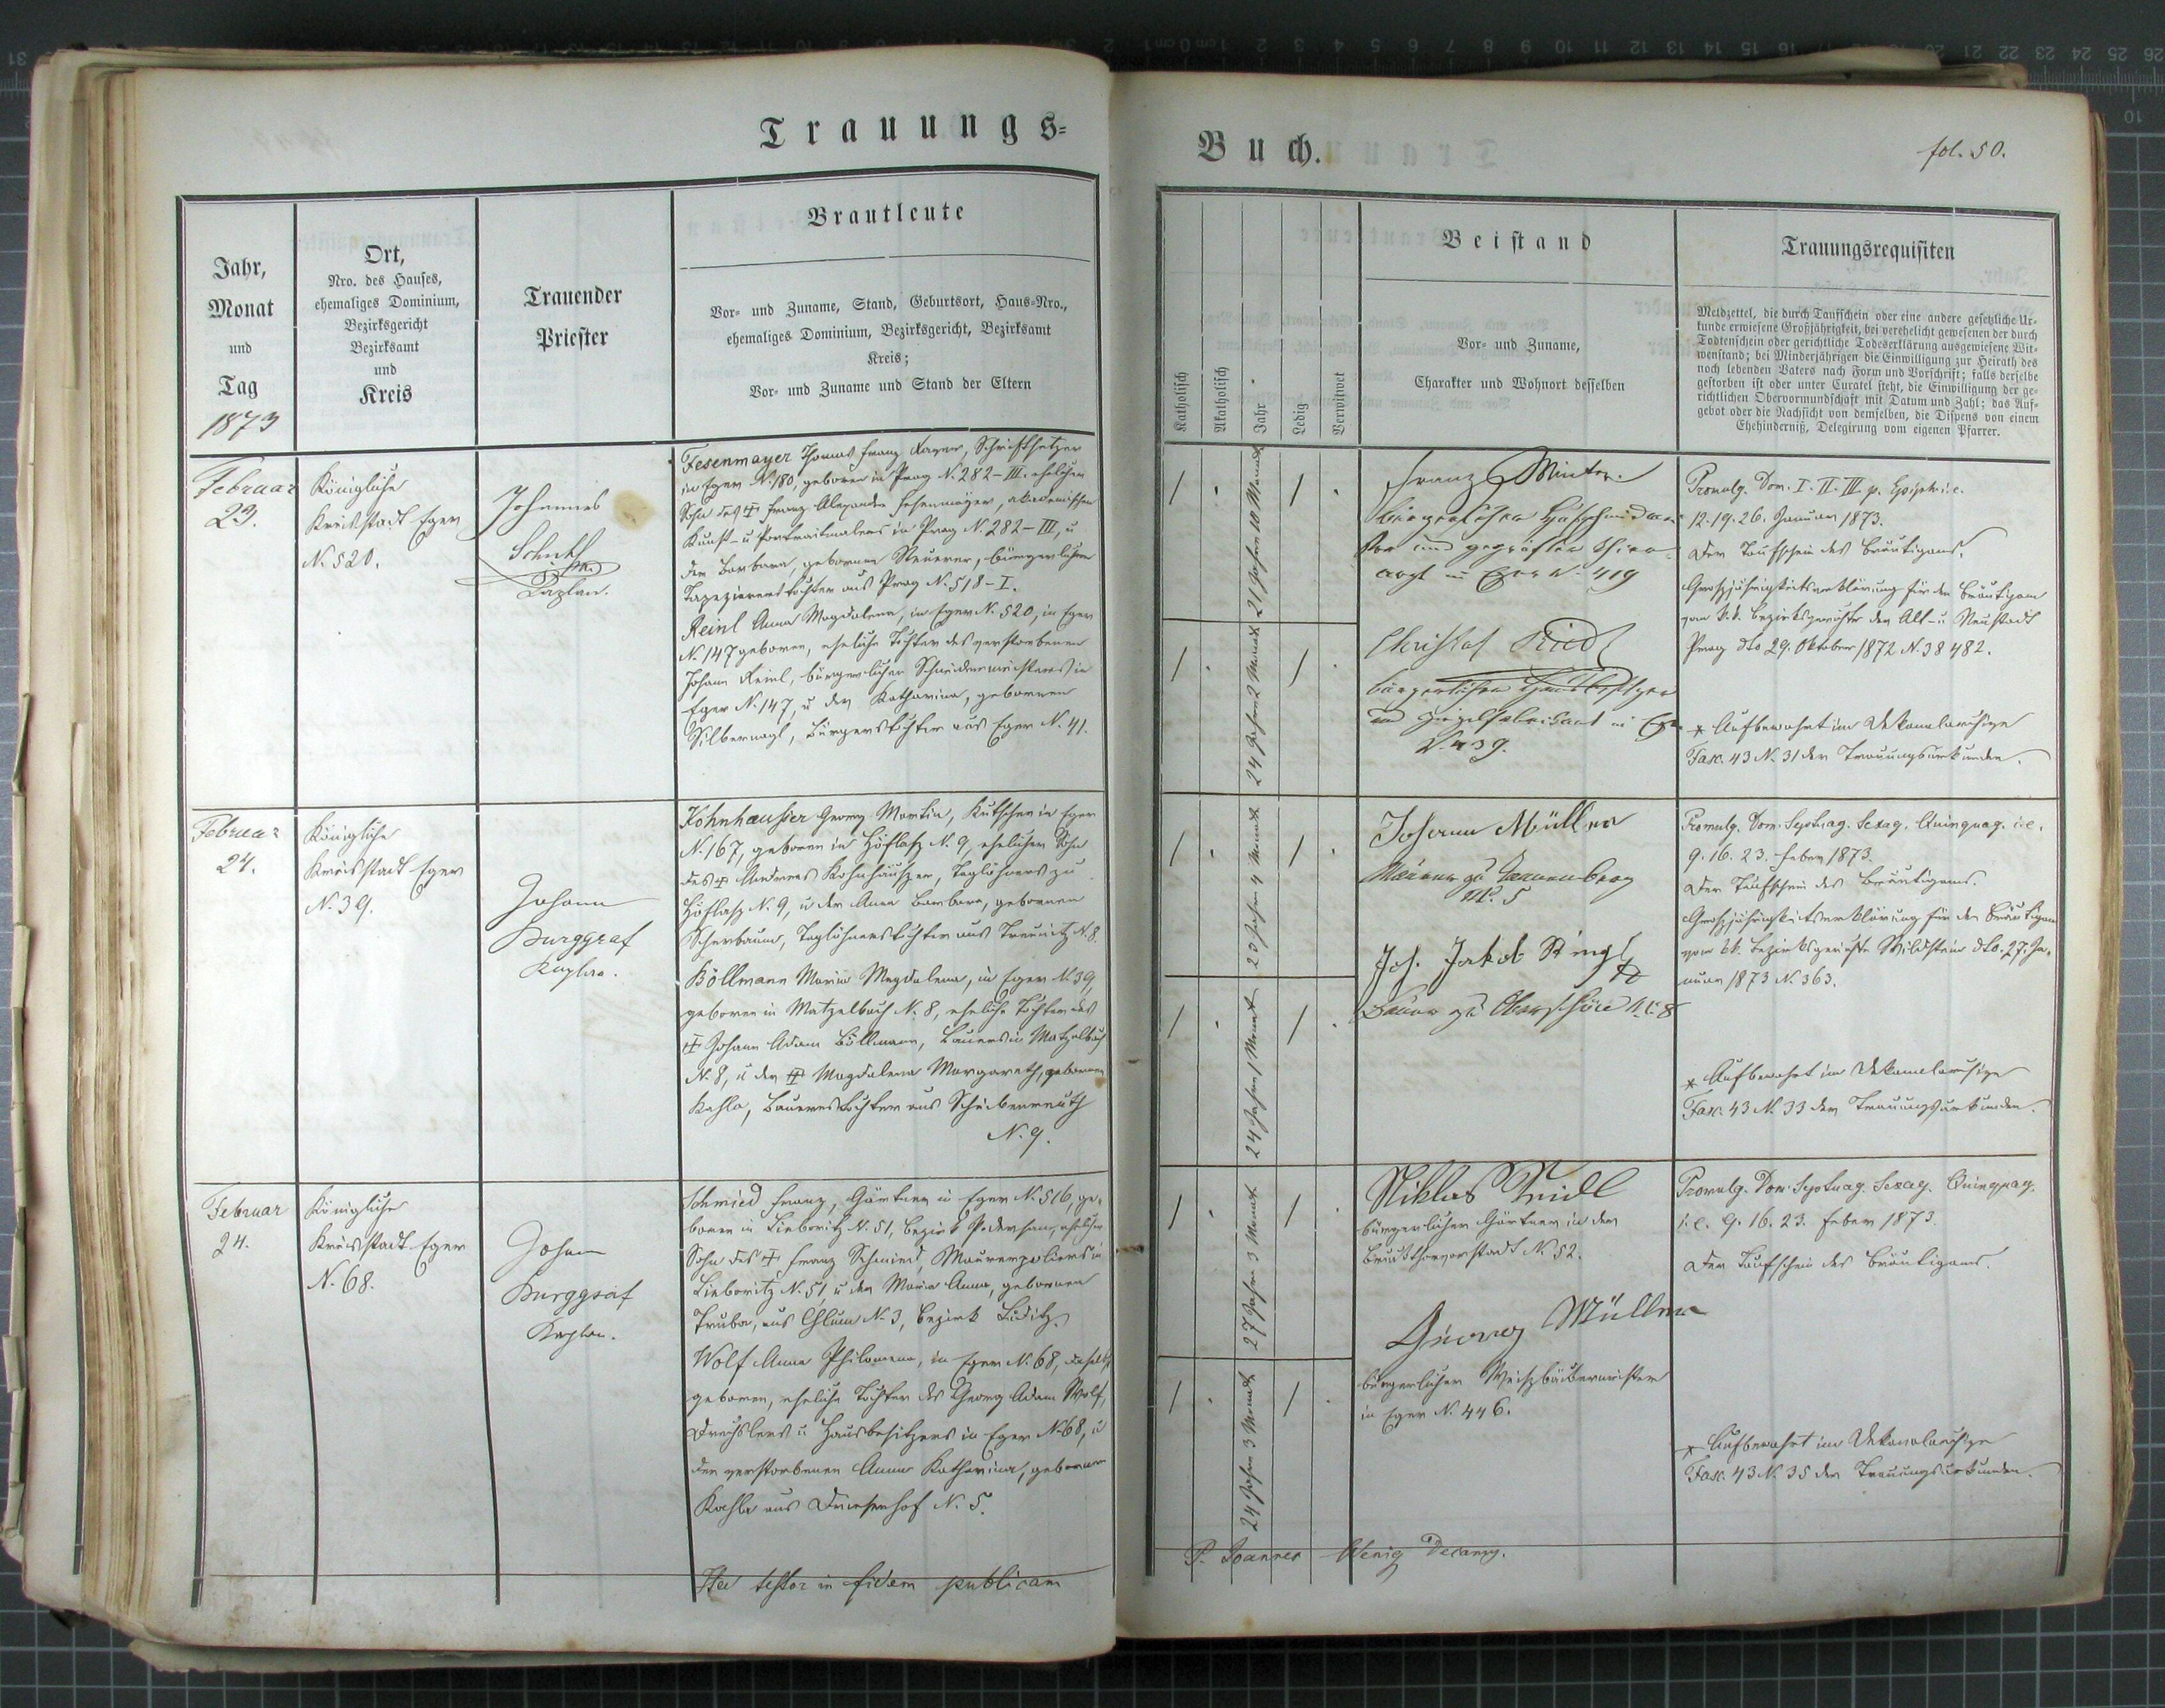 Trauungs-
Jahr,
Monat
und
Tag
1873
Ort,
Nro. des Hauses,
ehemaliges Dominium,
Bezirksgericht
Bezirksamt
und
Kreis
Trauender
Priester
Brautleute
Vor- und Zuname, Stand, Geburtsort, Haus-Nro.,
ehemaliges Dominium, Bezirksgericht, Bezirksamt
Kreis;
Vor- und Zuname und Stand der Eltern
Februar
23.
Königliche
Kreisstadt Eger
N. 520.
Johannes
Kaplan.
Fesenmayer Thomas Franz Xaver, Schriftsetzer
in Eger N. 180, geboren in Prag N. 282-III. ehelicher
Sohn des ☩ Franz Alexander Fesenmayer, akademischer
Kunst- u Portraitmalers in Prag N. 282-III, u
der Barbara, gebornen Steuerer, bürgerlichen
Tapezirerstochter aus Prag N. 518-I.
Reinl Anna Magdalena, in Eger N. 520, in Eger
N. 147 geboren, eheliche Tochter des verstorbenen
Johann Reinl, bürgerlicher Schneidermeisters in
Eger N. 147, u der Katharina, gebornen
Silbernagl, Bürgerstochter aus Eger N. 41.
Februar
24.
Königliche
Kreisstadt Eger
N. 39.
Johann
Burggraf
Kaplan.
Kohnhaußer Georg Martin, Kutscher in Eger
N. 167, geboren in Höflasz N. 9, ehelicher Sohn
des ☩ Andreas Kohnhäuszer, Taglöhners zu
Höflasz N. 9, u der Anna Barbara, gebornen
Scherbaum, Taglöhnerstochter aus Treunitz N. 8.
Böllmann Maria Magdalena, in Eger N. 39,
geboren in Matzelbach N. 8, eheliche Tochter des
☩ Johann Adam Böllmann, Bauers in Matzelbach
N. 8, u der ☩ Magdalena Margareth, gebornen
Kahla, Bauerstochter aus Scheibenreuth
N. 9.
Februar
24.
Königliche
Kreisstadt Eger
N. 68.
Johann
Burggraf
Kaplan.
Schmied Franz, Gärtner in Eger N. 516, ge-
boren in Liboritz N. 51, Bezirk Podersam, ehelicher
Sohn des ☩ Franz Schmied, Maurerpoliers in
Liboritz N. 51, u der Maria Anna, gebornen
Truba, aus Chlum N. 3, Bezirk Luditz.
Wolf Anna Philomena, in Eger N. 68, daselbst
geboren, eheliche Tochter des Georg Adam Wolf,
Drechslers u Hausbesitzers in Eger N. 68, u
der verstorbenen Anna Katharina, gebornen
Kahla aus Driesenhof N. 5.
Ita testor in fidem publicam
Buch.
fol. 50.
Katholisch
Akatholisch
Jahr
Ledig
Verwitwet
Beistand
Vor- und Zuname,
Charakter und Wohnort desselben
Trauungsrequisiten
Meldzettel, die durch Taufschein oder eine andere gesetzliche Ur-
kunde erwiesene Großjährigkeit, bei verehelicht gewesenen der durch
Todtenschein oder gerichtliche Todeserklärung ausgewiesene Wit-
wenstand; bei Minderjährigen die Einwilligung zur Heirath des
noch lebenden Vaters nach Form und Vorschrift; falls derselbe
gestorben ist oder unter Curatel steht, die Einwilligung der ge-
richtlichen Obervormundschaft mit Datum und Zahl; das Auf-
gebot oder die Nachsicht von demselben, die Dispens von einem
Ehehinderniß, Delegirung vom eigenen Pfarrer.
21 Jahre 10 Monat
24 Jahre 2 Monat
Franz Winter
bürgerlicher Hufschmidmei-
ster und geprüfter Thier-
arzt in Eger N. 419
Christof Ried
bürgerlicher Hausbesitzer
und Ziegelfabrikant in Eger
N. 439.
Promulg. Dom. I. II. III. p. Epiph. i. e.
12. 19. 26. Januar 1873.
Der Taufschein des Bräutigams.
Großjährigkeitserklärung für den Bräutigam
vom k. k. Bezirksgerichte der Alt- u Neustadt
Prag dto 29. Oktober 1872 N. 38482.
* Aufbewahrt im Dekanalarchive
Fasc. 43 N. 31 der Trauungsurkunden.
23 Jahre 4 Monat
24 Jahre 1 Monat
Johann Müller
Maurer zu Tannenberg
N. 5
Joh. Jakob Ringl
Bauer zu Oberschön N. 8
Promulg. Dom. Septuag. Sexag. Quinquag. i. e.
9. 16. 23. Feber 1873.
Der Taufschein des Bräutigams.
Großjährigkeitserklärung für den Bräutigam
vom k. k. Bezirksgerichte Wildstein dto. 27. Ja-
nuar 1873 N. 363.
* Aufbewahrt im Dekanalarchive
Fasc. 43 N. 33 der Trauungsurkunden.
27 Jahre 3 Monat
24 Jahre 3 Monat
Niklas Tridl
bürgerlicher Gärtner in der
Bruckthorvorstadt N. 52.
Georg Müller
bürgerlicher Weißbäckermeister
in Eger N. 446.
Promulg. Dom. Septuag. Sexag. Quinquag.
i. e. 9. 16. 23. Feber 1873.
Der Taufschein des Bräutigams.
* Aufbewahrt im Dekanalarchive
Fasc. 43 N. 35 der Trauungsurkunden.
P. Joannes Wenig Decanus.